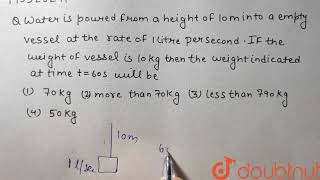 Q. Water is poured from a height of 10m into a empty
vessel at the rate of 1 litre per second. If the
weight of vessel is 10kg then the weight indicated
at time t=60s will be
(1) 70kg (2) more than 70kg (3) less than 790kg
(4) 50kg
10m
1 l/sec
doubtnut